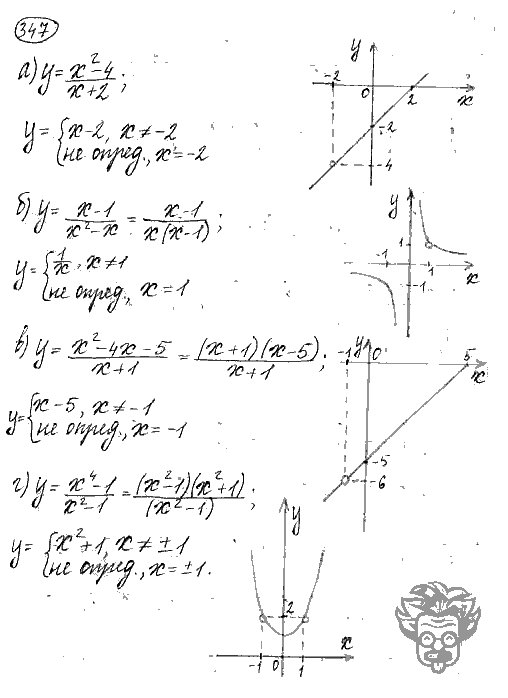 347
а) y = (x²-4)/(x+2);
y = {x-2, x ≠ -2
не опред., x = -2
y
-2
0
2
x
-2
-4
б) y = (x-1)/(x²-x) = (x-1)/(x(x-1));
y = {1/x, x ≠ 1
не опред., x = 1
y
1
-1
1
x
-1
в) y = (x²-4x-5)/(x+1) = ((x+1)(x-5))/(x+1);
y = {x-5, x ≠ -1
не опред., x = -1
-1
y
0
5
x
-5
-6
г) y = (x⁴-1)/(x²-1) = ((x²-1)(x²+1))/(x²-1);
y = {x²+1, x ≠ ±1
не опред., x = ±1.
y
2
x
-1
0
1